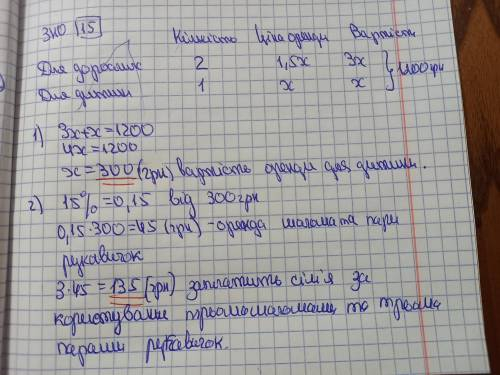 ЗНО 15
Кількість Ціна оренди Вартість
Для дорослих 2 1,5x 3x
Для дитини 1 x x } 1200 грн
1) 3x+x=1200
4x=1200
x=300 (грн) вартість оренди для дитини.
2) 15%=0,15 від 300 грн
0,15·300=45 (грн) - оренда шолома та пари
рукавичок
3·45=135 (грн) заплатить сім'я за
користування трьома шоломами та трьома
парами рукавичок.